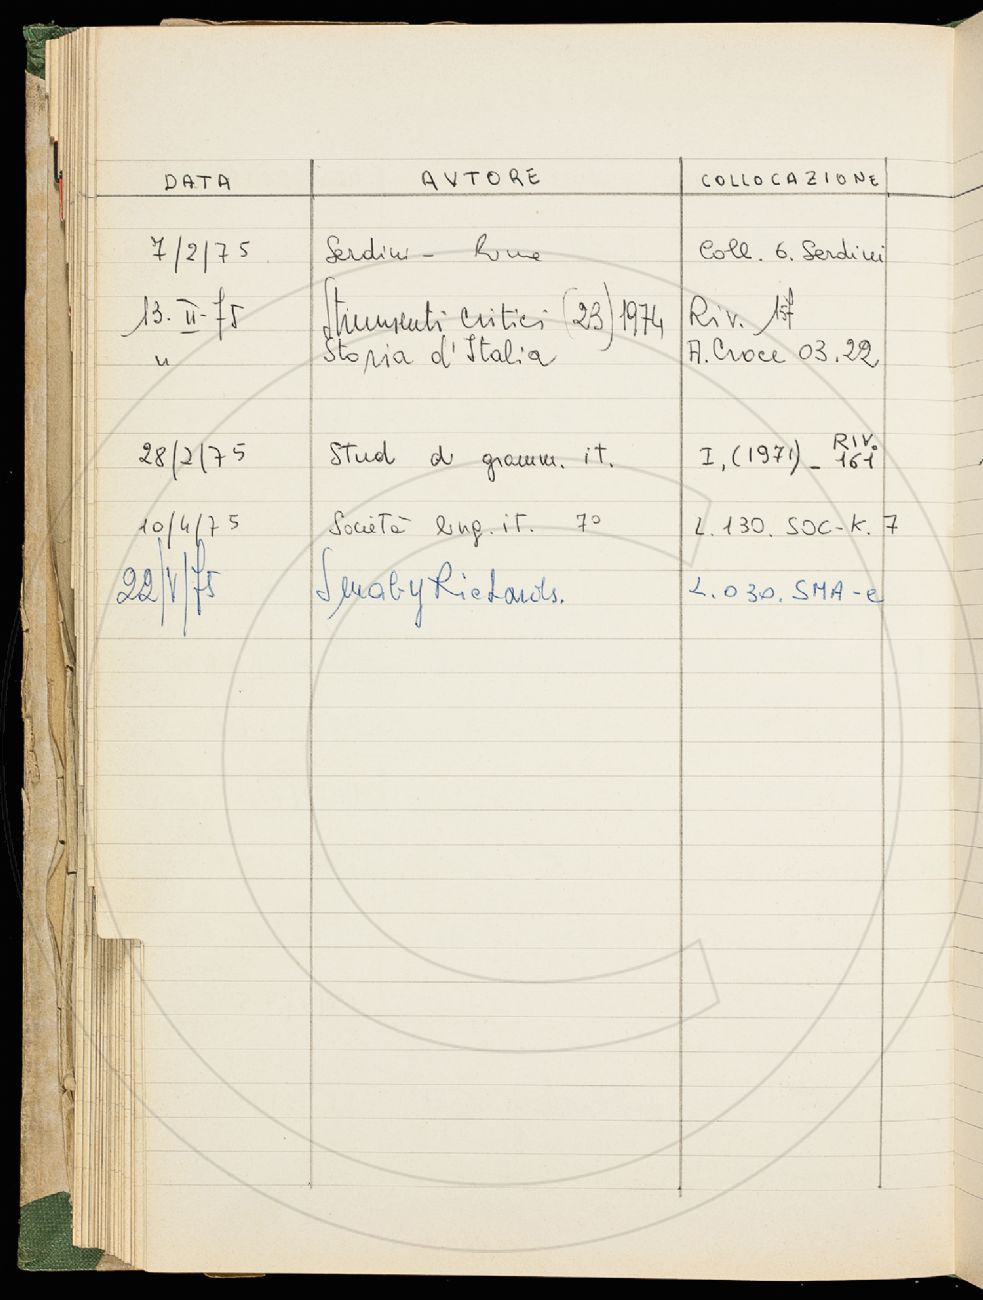 DATA AUTORE COLLOCAZIONE
7/2/75 Serdini - Coll. 6. Serdini
13. II - 75 Strumenti critici (23) 1974 Riv. 137
" Storia d'Italia A. Croce 03.22
28/2/75 Stud di gramm. it. I, (1971) - RIV. 161
10/4/75 Società ling. it. 7° L. 130. SOC-K. 7
22/V/75 Smaby Richards. L. 030. SMA-e